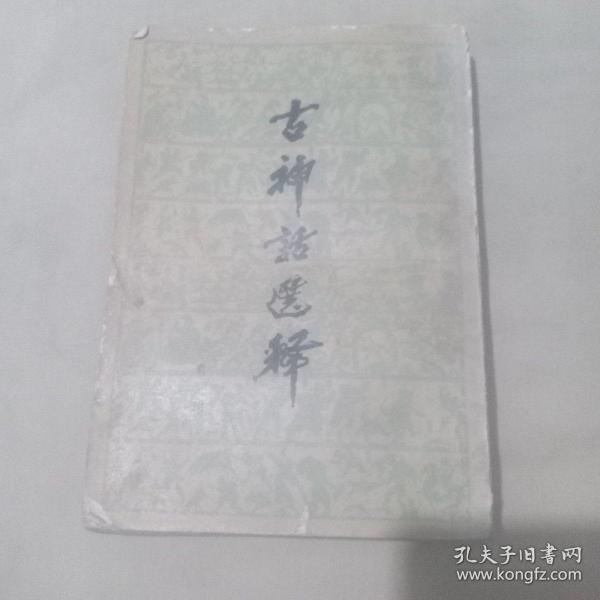 古神話選释
孔夫子旧書网
www.kongfz.com